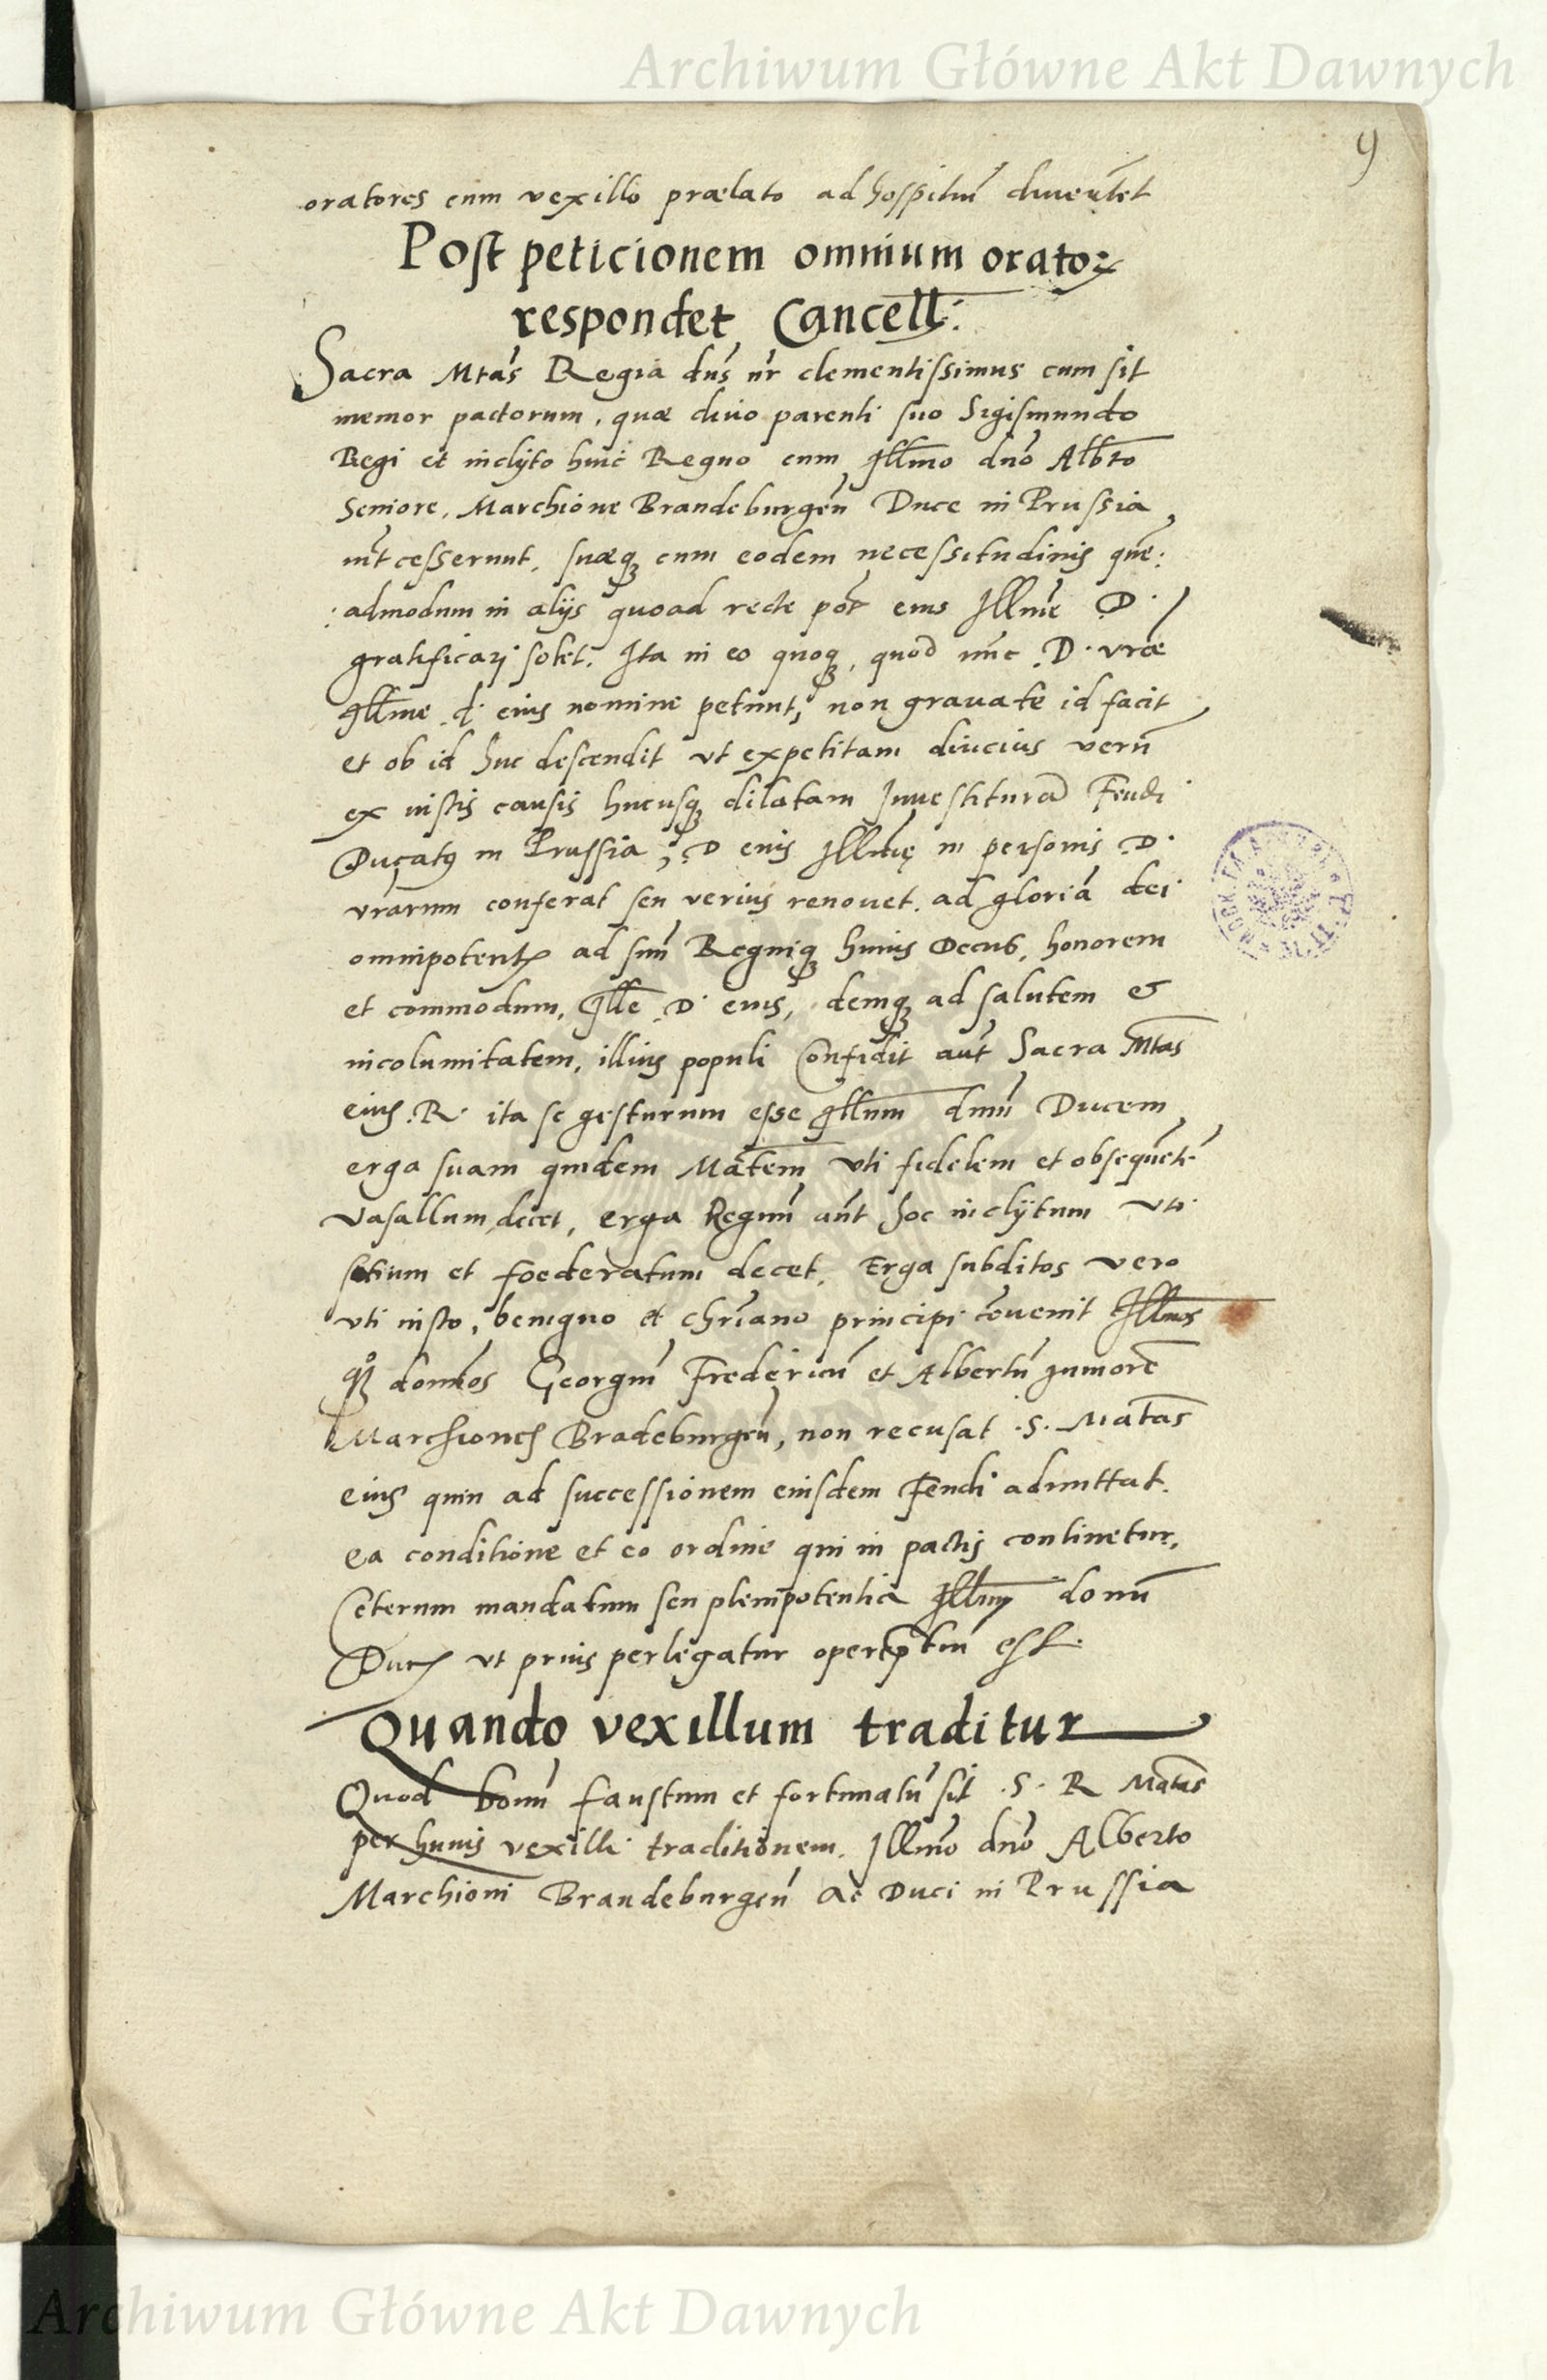 Archiwum Główne Akt Dawnych
9
oratores cum vexillo prælato ad hospitiũ diuertẽt
Post peticionem omnium orator
respondet Cancell:
Sacra Mtas Regia dns nr clementissimus cum sit
memor pactorum, quæ diuo parenti suo Sigismundo
Regi et inclyto huic Regno cum Illmo dno Albto
Seniore, Marchione Brandeburgen Duce in Prussia
int cesserunt, suæq cum eodem necessitudinis que:
:admodum in alijs quoad recte pot eius Illme D.
gratificari solet. Ita in eo quoq, quod nunc D. vræ
Illme d. eius nomine petunt, non grauate id facit
et ob id huc descendit vt expetitam diucius verũ
ex iustis causis hucusq dilatam Inuestiturã Feudi
Ducatus in Prussia, D eius Illme in personis D.
vrarum conferat seu verius renouet. ad gloriã dei
omnipotentis ad suũ Regniq huius Decus, honorem
et commodum, Ille D. eius, demq ad salutem et
incolumitatem, illius populi Confidit aut Sacra Mtas
eius R. ita se gesturum esse Illum dnũ Ducem
erga suam quidem Matem vti fidelem et obsequẽtẽ
Vasallum decet, erga Regnũ aut hoc inclÿtum vti
sotium et foederatum decet. Erga subditos vero
vti iusto, benigno et chriano principi cõuenit Illmos
qq domos Georgiũ Fredericũ et Albertũ iuniorẽ
Marchiones Brãdeburgen, non recusat S. Matas
eius quin ad successionem eiusdem Feudi admittat.
ea conditione et eo ordine qui in pactis continetur.
Ceterum mandatum seu plenipotentia Illmi domi
Ducis vt prius perlegatur operepretiũ est.
Quando vexillum traditur
Quod bonũ faustum et fortunatũ sit S. R Matas
per huius vexilli traditionem. Illmo dno Alberto
Marchioni Brandeburgen Ac Duci in Prussia
Archiwum Główne Akt Dawnych